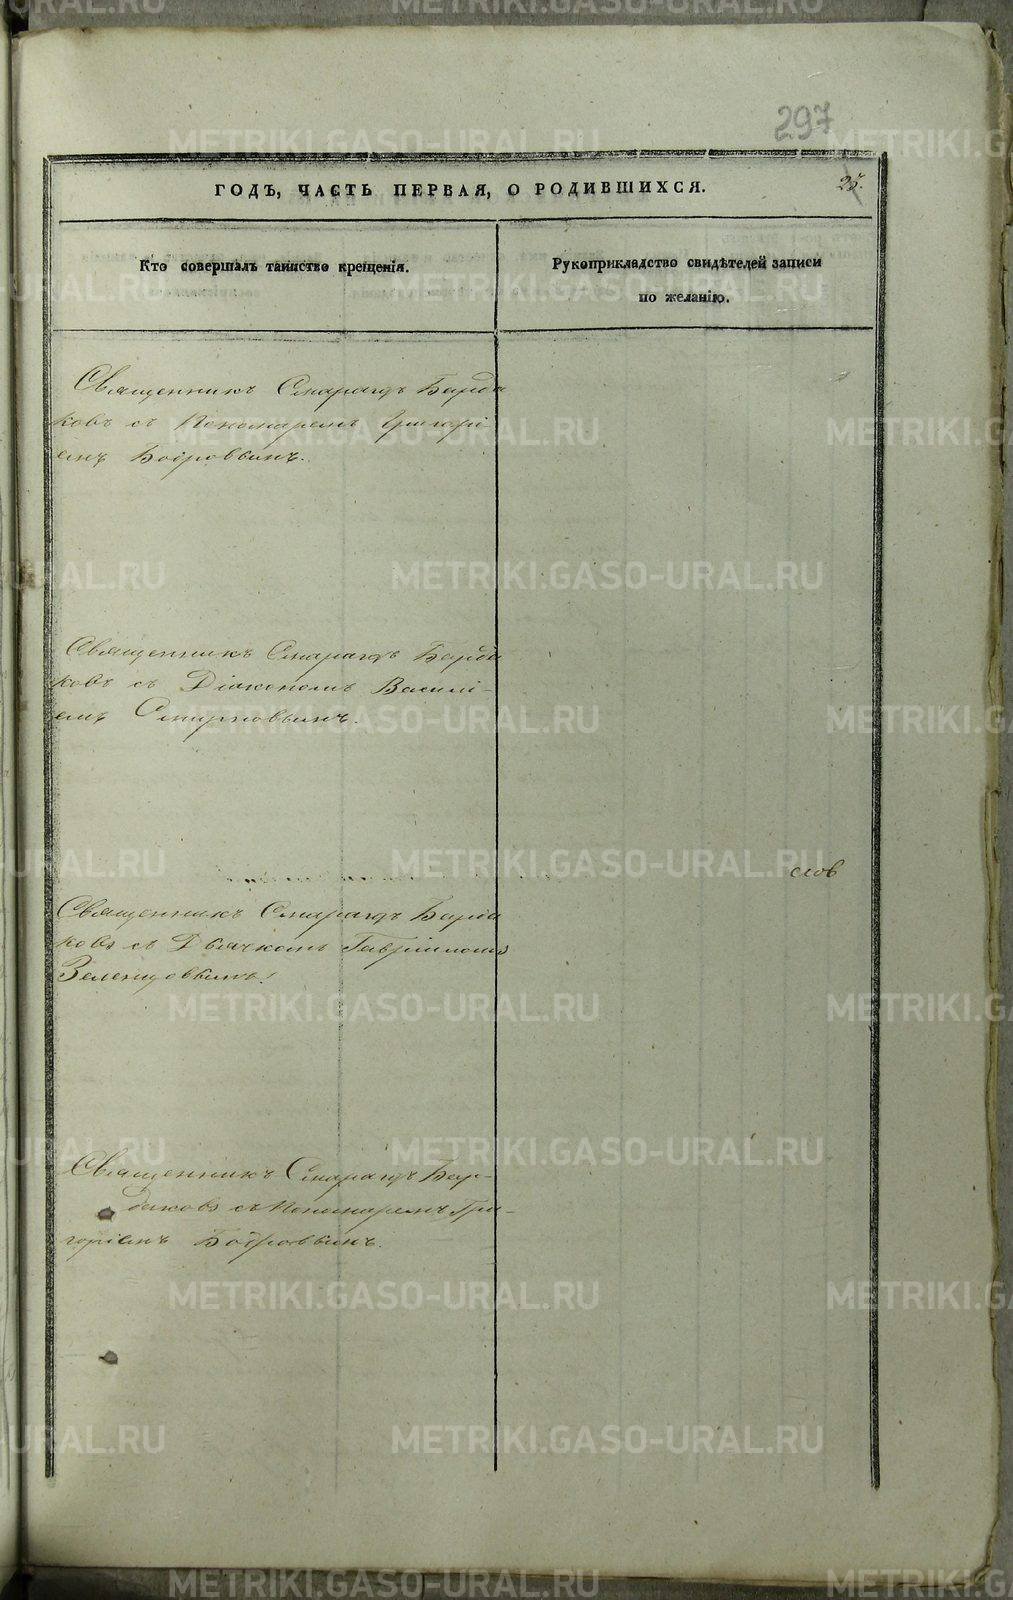 297
ГОДЪ, ЧАСТЬ ПЕРВАЯ, О РОДИВШИХСЯ.
25.
Кто совершалъ таинство крещенія.
Рукоприкладство свидѣтелей записи
по желанію.
Священникъ Смарагдъ Барда
ковъ съ Пономаремъ Григорі
емъ Бобровымъ.
Священникъ Смарагдъ Барда
ковъ съ Діакономъ Василі-
емъ Смирновымъ.
слов
Священникъ Смарагдъ Барда
ковъ съ Дьячкомъ Гавріиломъ
Зеленцовымъ.
Священникъ Смарагдъ Бар-
даковъ съ Пономаремъ Гри-
горіемъ Бобровымъ.
METRIKI.GASO-URAL.RU